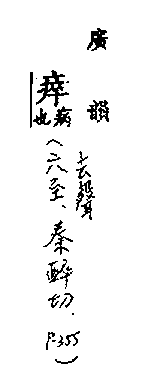 廣韻
瘁病也(去聲
六至、秦醉切.
P.355)